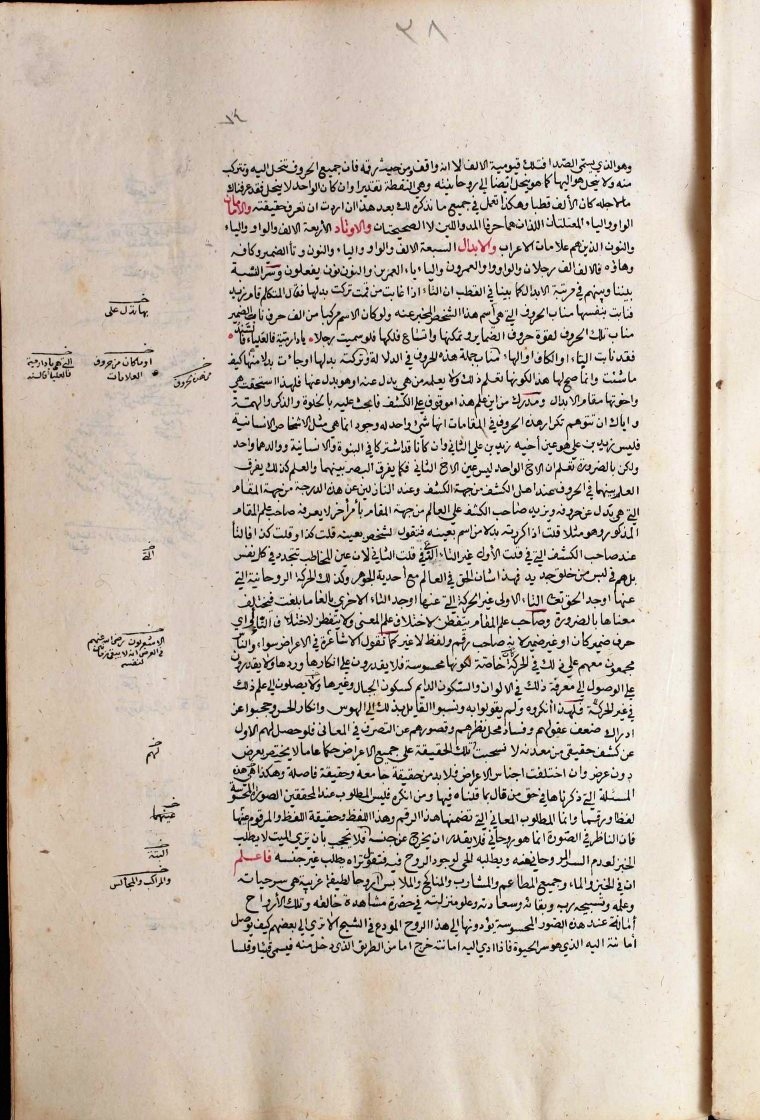 ٢٨
وهو الذي يسمى الصدا فتلك قيومية الالف لا انه واقف ومن حيث رقمه فان جميع الحروف تنحل اليه وتتركب
منه ولا ينحل هو اليها كما هو ينحل ايضا الى روحانيته وهي النقطة تقديرا وان كان الواحد لا ينحل فقد عرفناك
ما لاجله كان الالف قطبا وهكذا تعمل في جميع ما نذكره لك بعد هذا ان اردت ان تعرف حقيقته والامامان
الواو والياء المعتلتان اللذان هما حرفا المد واللين لا الصحيحتان والاوتاد الاربعة الالف والواو والياء
والنون الذين هم علامات الاعراب والابدال السبعة الالف والواو والياء والنون وتاء الضمير وكافه
وهاؤه فالالف الف رجلان والواو واو العمرون والياء ياء العمرين والنون نون يفعلون وسر النسبة
بيننا وبينهم في مرتبة الابدال كما بينا في القطب ان التاء اذا غابت من قمت تركت بدلها فقال المتكلم قام زيد
فنابت بنفسها مناب الحروف التي هي اسم هذا الشخص المخبر عنه ولو كان الاسم مركبا من الف حرف ناب الضمير
مناب تلك الحروف لقوة حروف الضماير وتمكنها واتساع فلكها فلو سميت رجلا يا دار مية فالعلياء فالسند
فقد نابت التاء او الكاف او الهاء مناب جملة هذه الحروف في الدلالة وتركته بدلها او جاءت بدلا منها كيف
ما شئت وانما صح لها هذا لكونها تعلم ذلك ولا يعلم من هي بدل عنه او هو بدل عنها فلهذا استحقت هي
واخوتها مقام الابدال ومدرك من اين علم هذا موقوف على الكشف فابحث عليه بالخلوة والذكر والهمة
واياك ان تتوهم تكرار هذه الحروف في المقامات انها شيء واحد له وجوه انما هي مثل الاشخاص الانسانية
فليس زيد بن علي هو عين اخيه زيد بن علي الثاني وان كانا قد اشتركا في البنوة والانسانية ووالدهما واحد
ولكن بالضرورة نعلم ان الاخ الواحد ليس عين الاخ الثاني فكما يفرق البصر بينهما والعلم كذلك يفرق
العلم بينهما في الحروف عند اهل الكشف من جهة الكشف وعند النازلين عن هذه الدرجة من جهة المقام
التي هي بدل عن حروفه ويزيد صاحب الكشف على العالم من جهة المقام بامر اخر لا يعرفه صاحب علم المقام
المذكور وهو مثلا قلت اذا كررته بدلا من اسم بعينه فتقول لشخص بعينه قلت كذا وقلت كذا فالتاء
عند صاحب الكشف التي في قلت الاول غير التاء التي في قلت الثاني لان عين المخاطب تتجدد في كل نفس
بل هم في لبس من خلق جديد فهذا شان الحق في العالم مع احدية الجوهر وكذلك الحركة الروحانية التي
عنها اوجد الحق تعالى التاء الاولى غير الحركة التي عنها اوجد التاء الاخرى بالغا ما بلغت فيختلف
معناها بالضرورة وصاحب علم المقام يتفطن لاختلاف علم المعنى ولا يتفطن لاختلاف التاء او اي
حرف ضمير كان او غير ضمير لانه صاحب رقم ولفظ لا غير كما تقول الاشاعرة في الاعراض سواء والناس
مجمعون معهم على ذلك في الحركة خاصة لكونها محسوسة فلا يقدرون على انكارها وردها ولا يقدرون
على الوصول الى معرفة ذلك في الالوان والسكون الدايم كسكون الجبال وغيرها ولا يصلون الى علم ذلك
في غير الحركة فلهذا انكروه ولم يقولوا به ونسبوا القايل بذلك الى الهوس وانكار الحس وحجبوا عن
ادراك ضعف عقولهم وفساد محل نظرهم وقصورهم عن التصرف في المعاني فلو حصل لهم الاول
عن كشف حقيقي من معدنه لانسحبت تلك الحقيقة على جميع الاعراض حكما عاما لا يختص بعرض
دون عرض وان اختلفت اجناس الاعراض فلا بد من حقيقة جامعة وحقيقة فاصلة وهكذا هي هذه
المسئلة التي ذكرناها في حق من قال بما قلناه فيها ومن انكره فليس المطلوب عند المحققين الصور المحسوسة
لفظا ورقما وانما المطلوب المعاني التي تضمنها هذا الرقم وهذا اللفظ وحقيقة اللفظ والمرقوم عنها
فان الناظر في الصورة انما هو روحاني فلا يقدر ان يخرج عن جنسه فلا تحجب بان ترى الميت لا يطلب
الخبز لعدم السر الروحاني عنه ويطلبه الحي لوجود الروح فيه فتقول نراه يطلب غير جنسه فاعلم
ان في الخبز والماء وجميع المطاعم والمشارب والمناكح والملابس ارواحا لطيفة غريبة هي سر حياته
وعلمه وتسبيحه ربه وبقائه وسعادته وعلو منزلته في حضرة مشاهدة خالقه وتلك الارواح
امانة عند هذه الصور المحسوسة يؤدونها الى هذا الروح المودع في الشبح الا ترى الى بعضهم كيف يوصل
امانته اليه الذي هو سر الحيوة فاذا ادى اليه امانته خرج اما من الطريق الذي دخل منه فيسمى قيئا وقلسا
بها بدل على
او ما كان من حروف
العلامات
التي هي يا دار مية
فالعليا فالسند
التي
الاشعريون رحمهم الله عنهم
في العرض انه لا يبقى زمانين
لنفسه
لهم
عينهما
البتة
والمراكب والمجالس